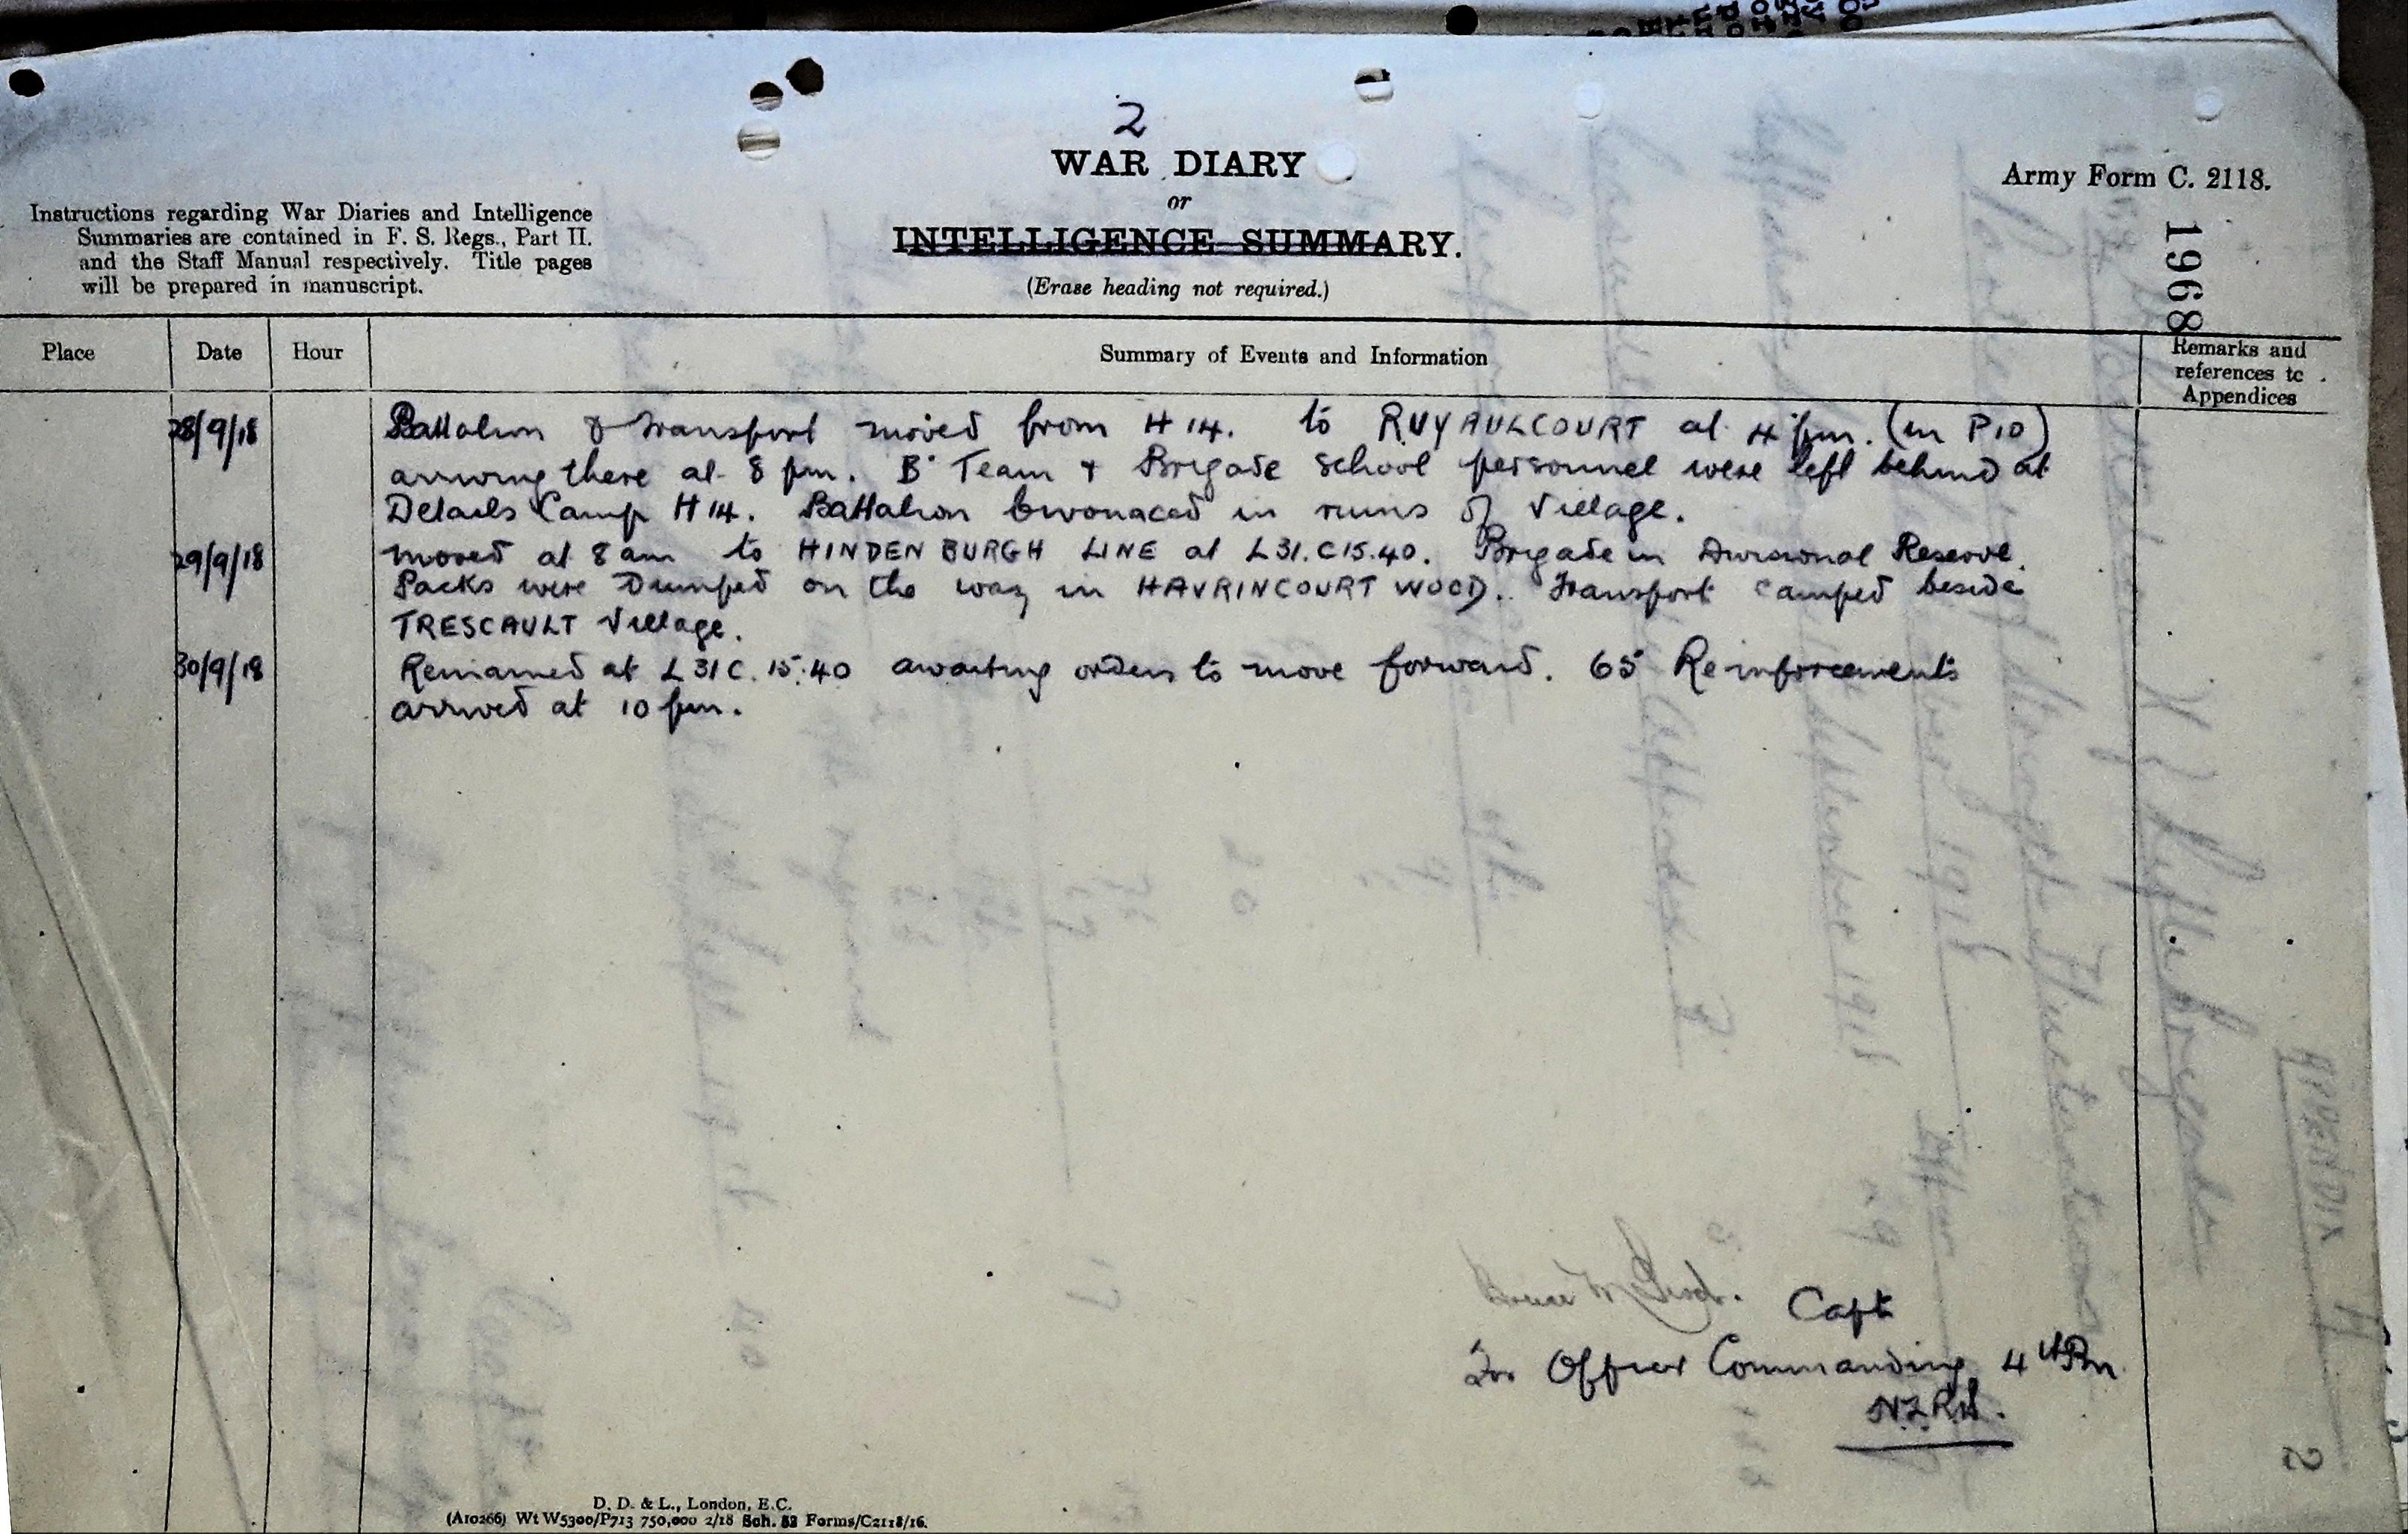 2
WAR DIARY
or
INTELLIGENCE SUMMARY.
(Erase heading not required.)
Army Form C. 2118.
1968
Instructions regarding War Diaries and Intelligence
Summaries are contained in F. S. Regs., Part II.
and the Staff Manual respectively. Title pages
will be prepared in manuscript.
Place Date Hour Summary of Events and Information Remarks and
references to
Appendices
28/9/18 Battalion & Transport moved from H 14. to RUYAULCOURT at 4 pm. (in P10)
arriving there at 8 pm. B Team & Brigade School personnel were left behind at
Details Camp H 14. Battalion bivouaced in ruins of Village.
29/9/18 moved at 8 am to HINDENBURGH LINE at L31.C15.40. Brigade in Divisional Reserve.
Packs were Dumped on the way in HAVRINCOURT WOOD. Transport camped beside
TRESCAULT Village.
30/9/18 Remained at L31C.15.40 awaiting orders to move forward. 65 Reinforcements
arrived at 10 pm.
Capt
For Officer Commanding 4th Bn
N.Z.R.B.
APPENDIX H
2
D. D. & L., London, E.C.
(A10266) Wt W5300/P713 750,000 2/18 Sch. 52 Forms/C2118/16.